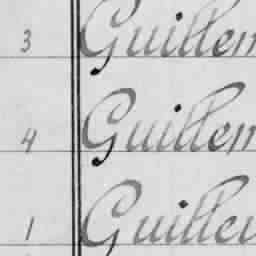 3 Guillem
4 Guillem
1 Guillem